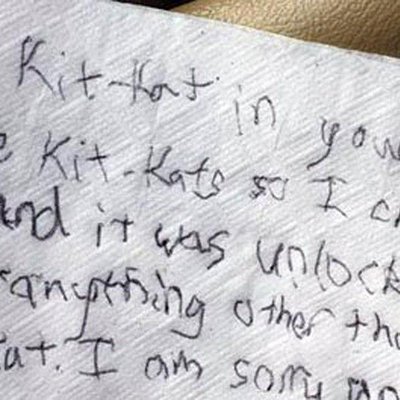 Kit-Kat in you
Kit-Kats so I ch
and it was unlock
anything other tha
at. I am sorry an